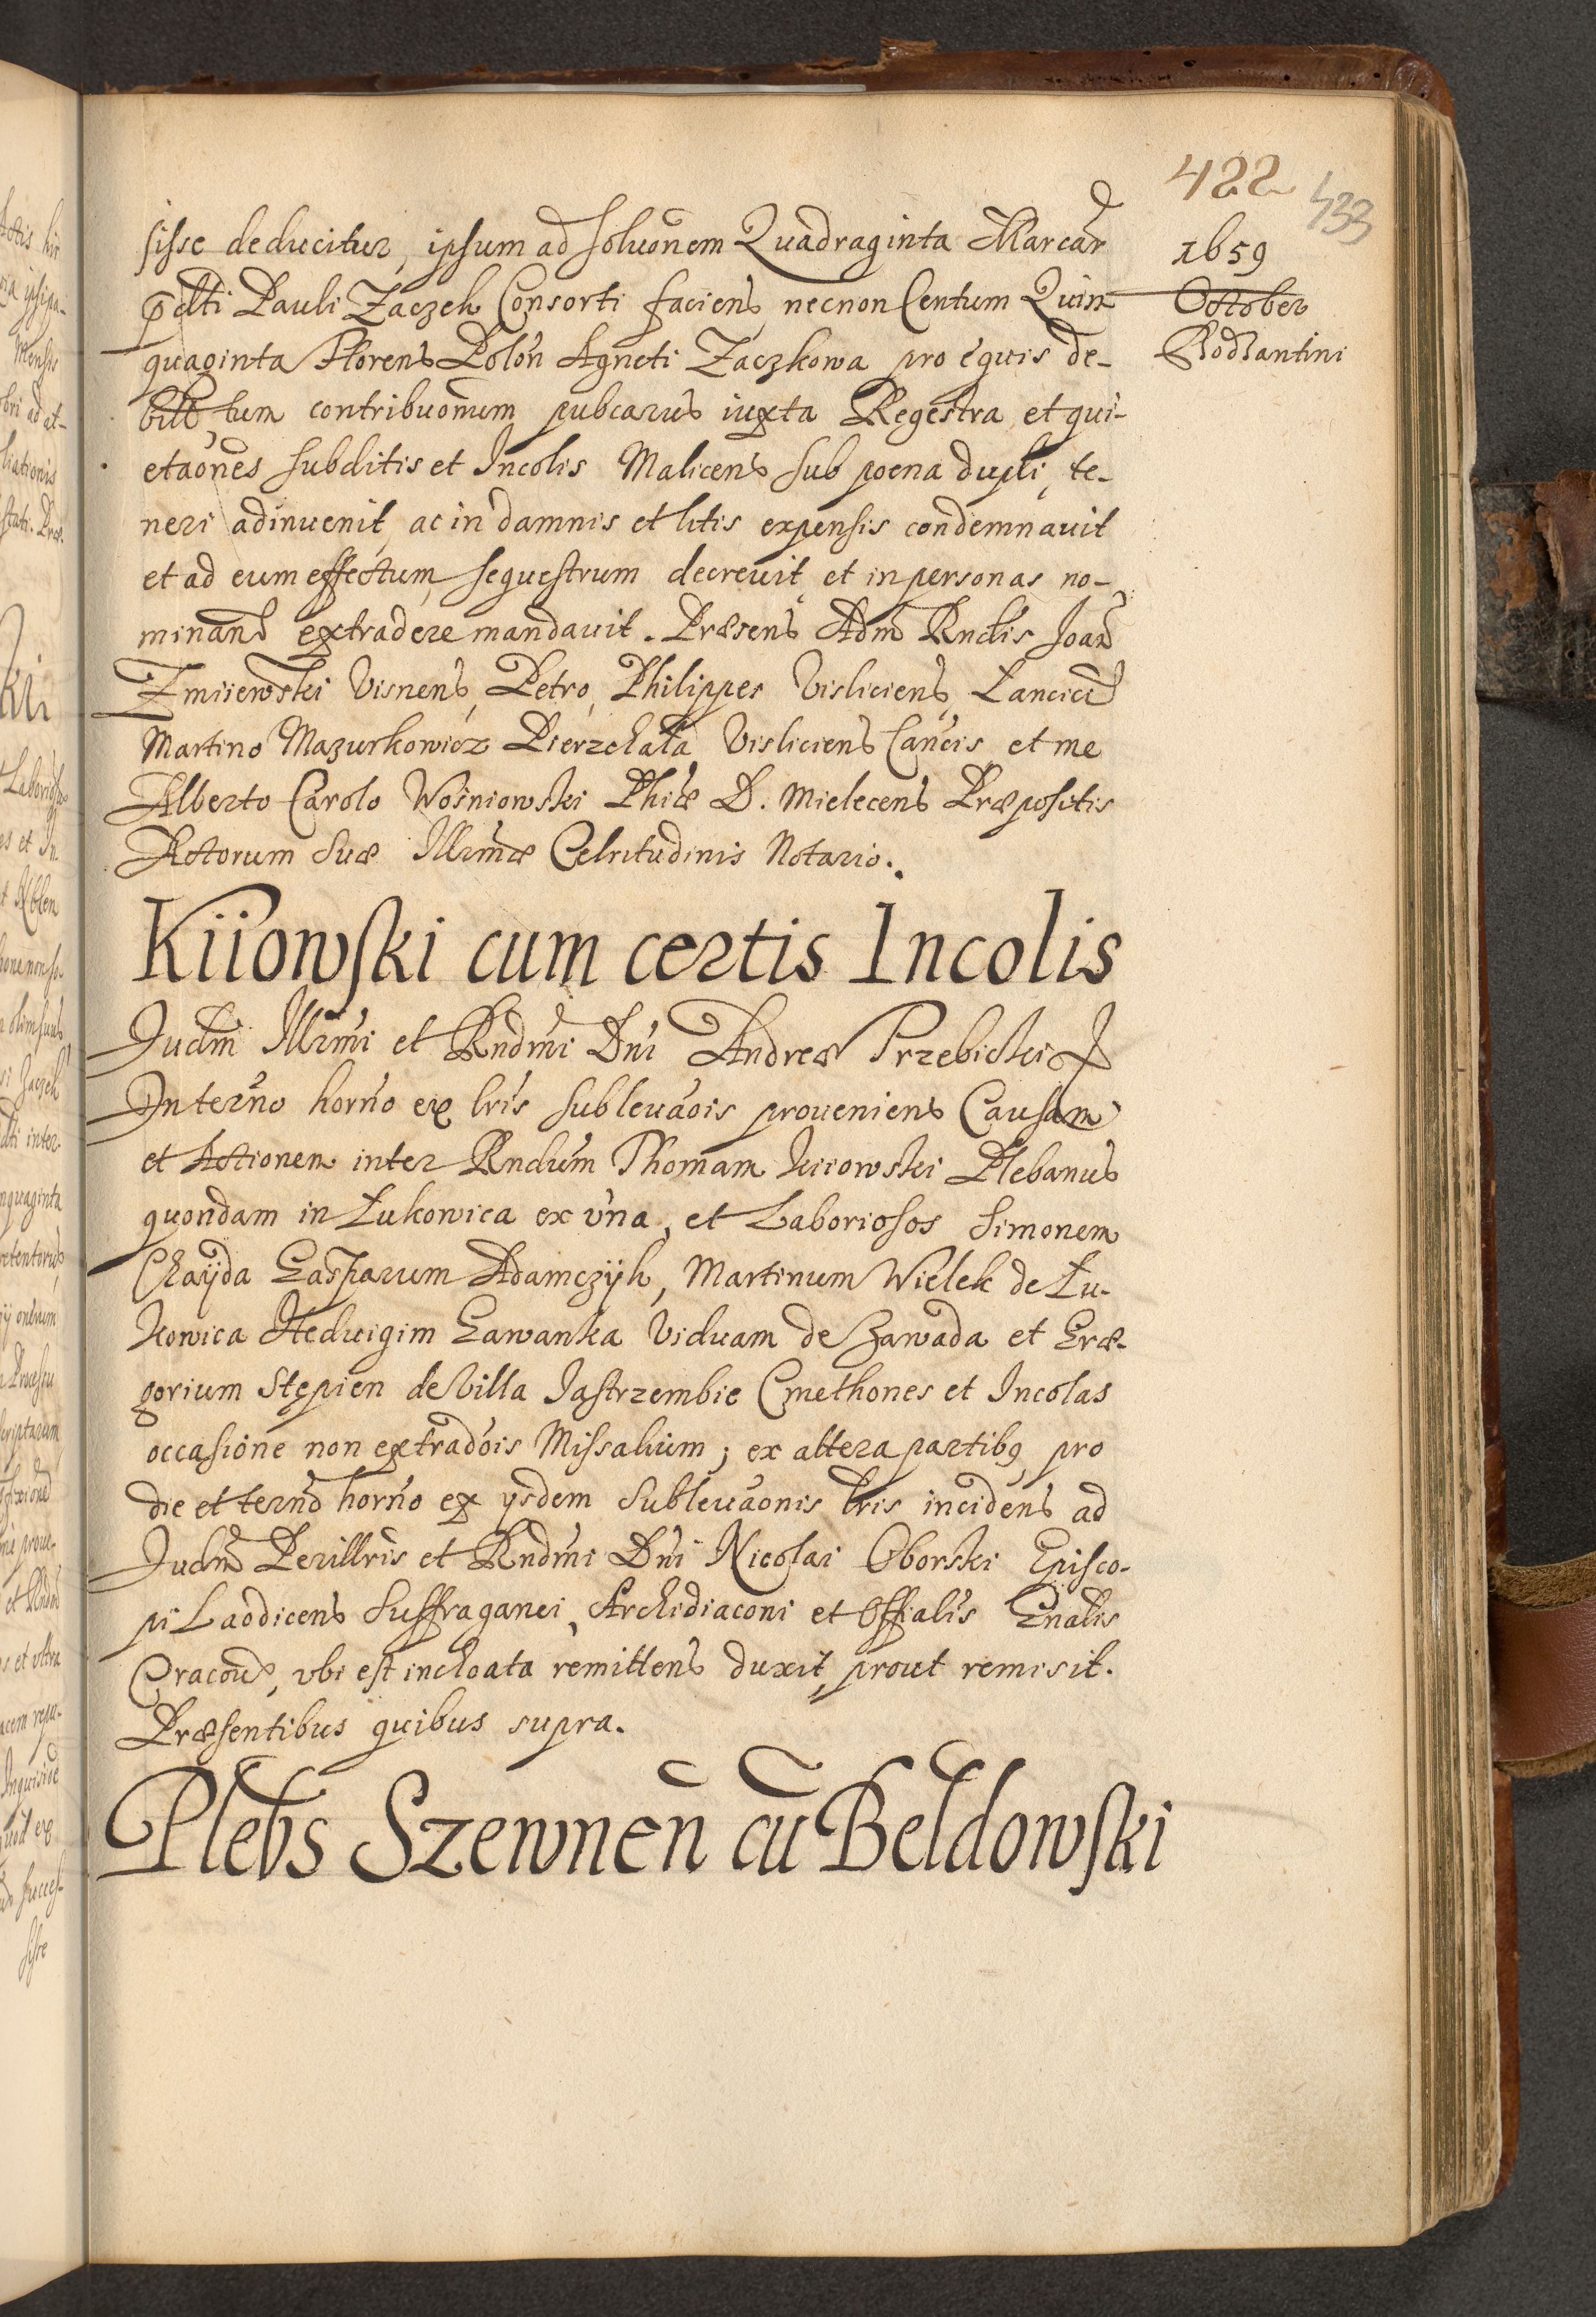 422
433
1659
October
Bodzantini
sisse deducitur, ipsum ad solvonem Quadraginta Marcar
pdlti Pauli Zaczek Consorti faciens necnon Centum Quin
quaginta Florens Polon Agneti Zaczkowa pro equis de-
bill tum contribuonum pubcarus iuxta Regestra et qui-
etaones subditis et Incolis Malicens sub poena dupli, te-
neri adinuenit, ac in damnis et litis expensis condemnauit
et ad eum effectum, sequestrum decreuit, et in personas no-
minand extradere mandauit. Præsens Adm Rndis Joan
Zmiiewski Visnens, Petro, Philippes Visliciens, Lancici
Martino Mazurkowicz Pierzchała Visliciens Cancis et me
Alberto Carolo Wośniowski Phiæ D. Mielecens Præpositis
Actorum Suæ Illrmæ Celsitudinis Notario.
Kiiowski cum certis Incolis
Judm Illrmi et Rndmi Dni Andreæ Przebicki
In terno horno ex lris subleuaois proueniens Causam
et Actionem inter Rndum Thomam Kiiowski Plebanus
quondam in Łukowica ex una, et Laboriosos Simonem
Chayda Gasparum Adamczyk, Martinum Wielek de Łu-
kowica Hedvigim Gawanka Viduam de Zawada et Græ-
gorium Stępien de Villa Jastrzembie Cmethones et Incolas
occasione non extradois Missalium; ex altera partibq pro
die et ternd horno ex ysdem subleuaonis lris incidens ad
Judm Perillris et Rndmi Dni Nicolai Oborski Episco-
pi Laodicens Suffraganei, Archidiaconi et Offialis Gnalis
Cracou, ubi est inchoata remittens duxit, prout remisit.
Præsentibus quibus supra.
Plebs Szewnen cu Beldowski